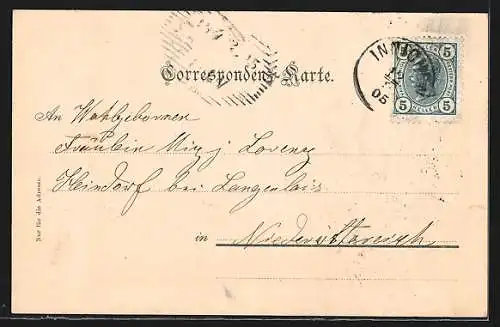 Correspondenz-Karte.
5 5
5 HELLER 5
05
An Wohlgeboren
Fräulein Minz j Lorenz
Heindorf bei Langenlois
in Niederösterreich
Nur für die Adresse.